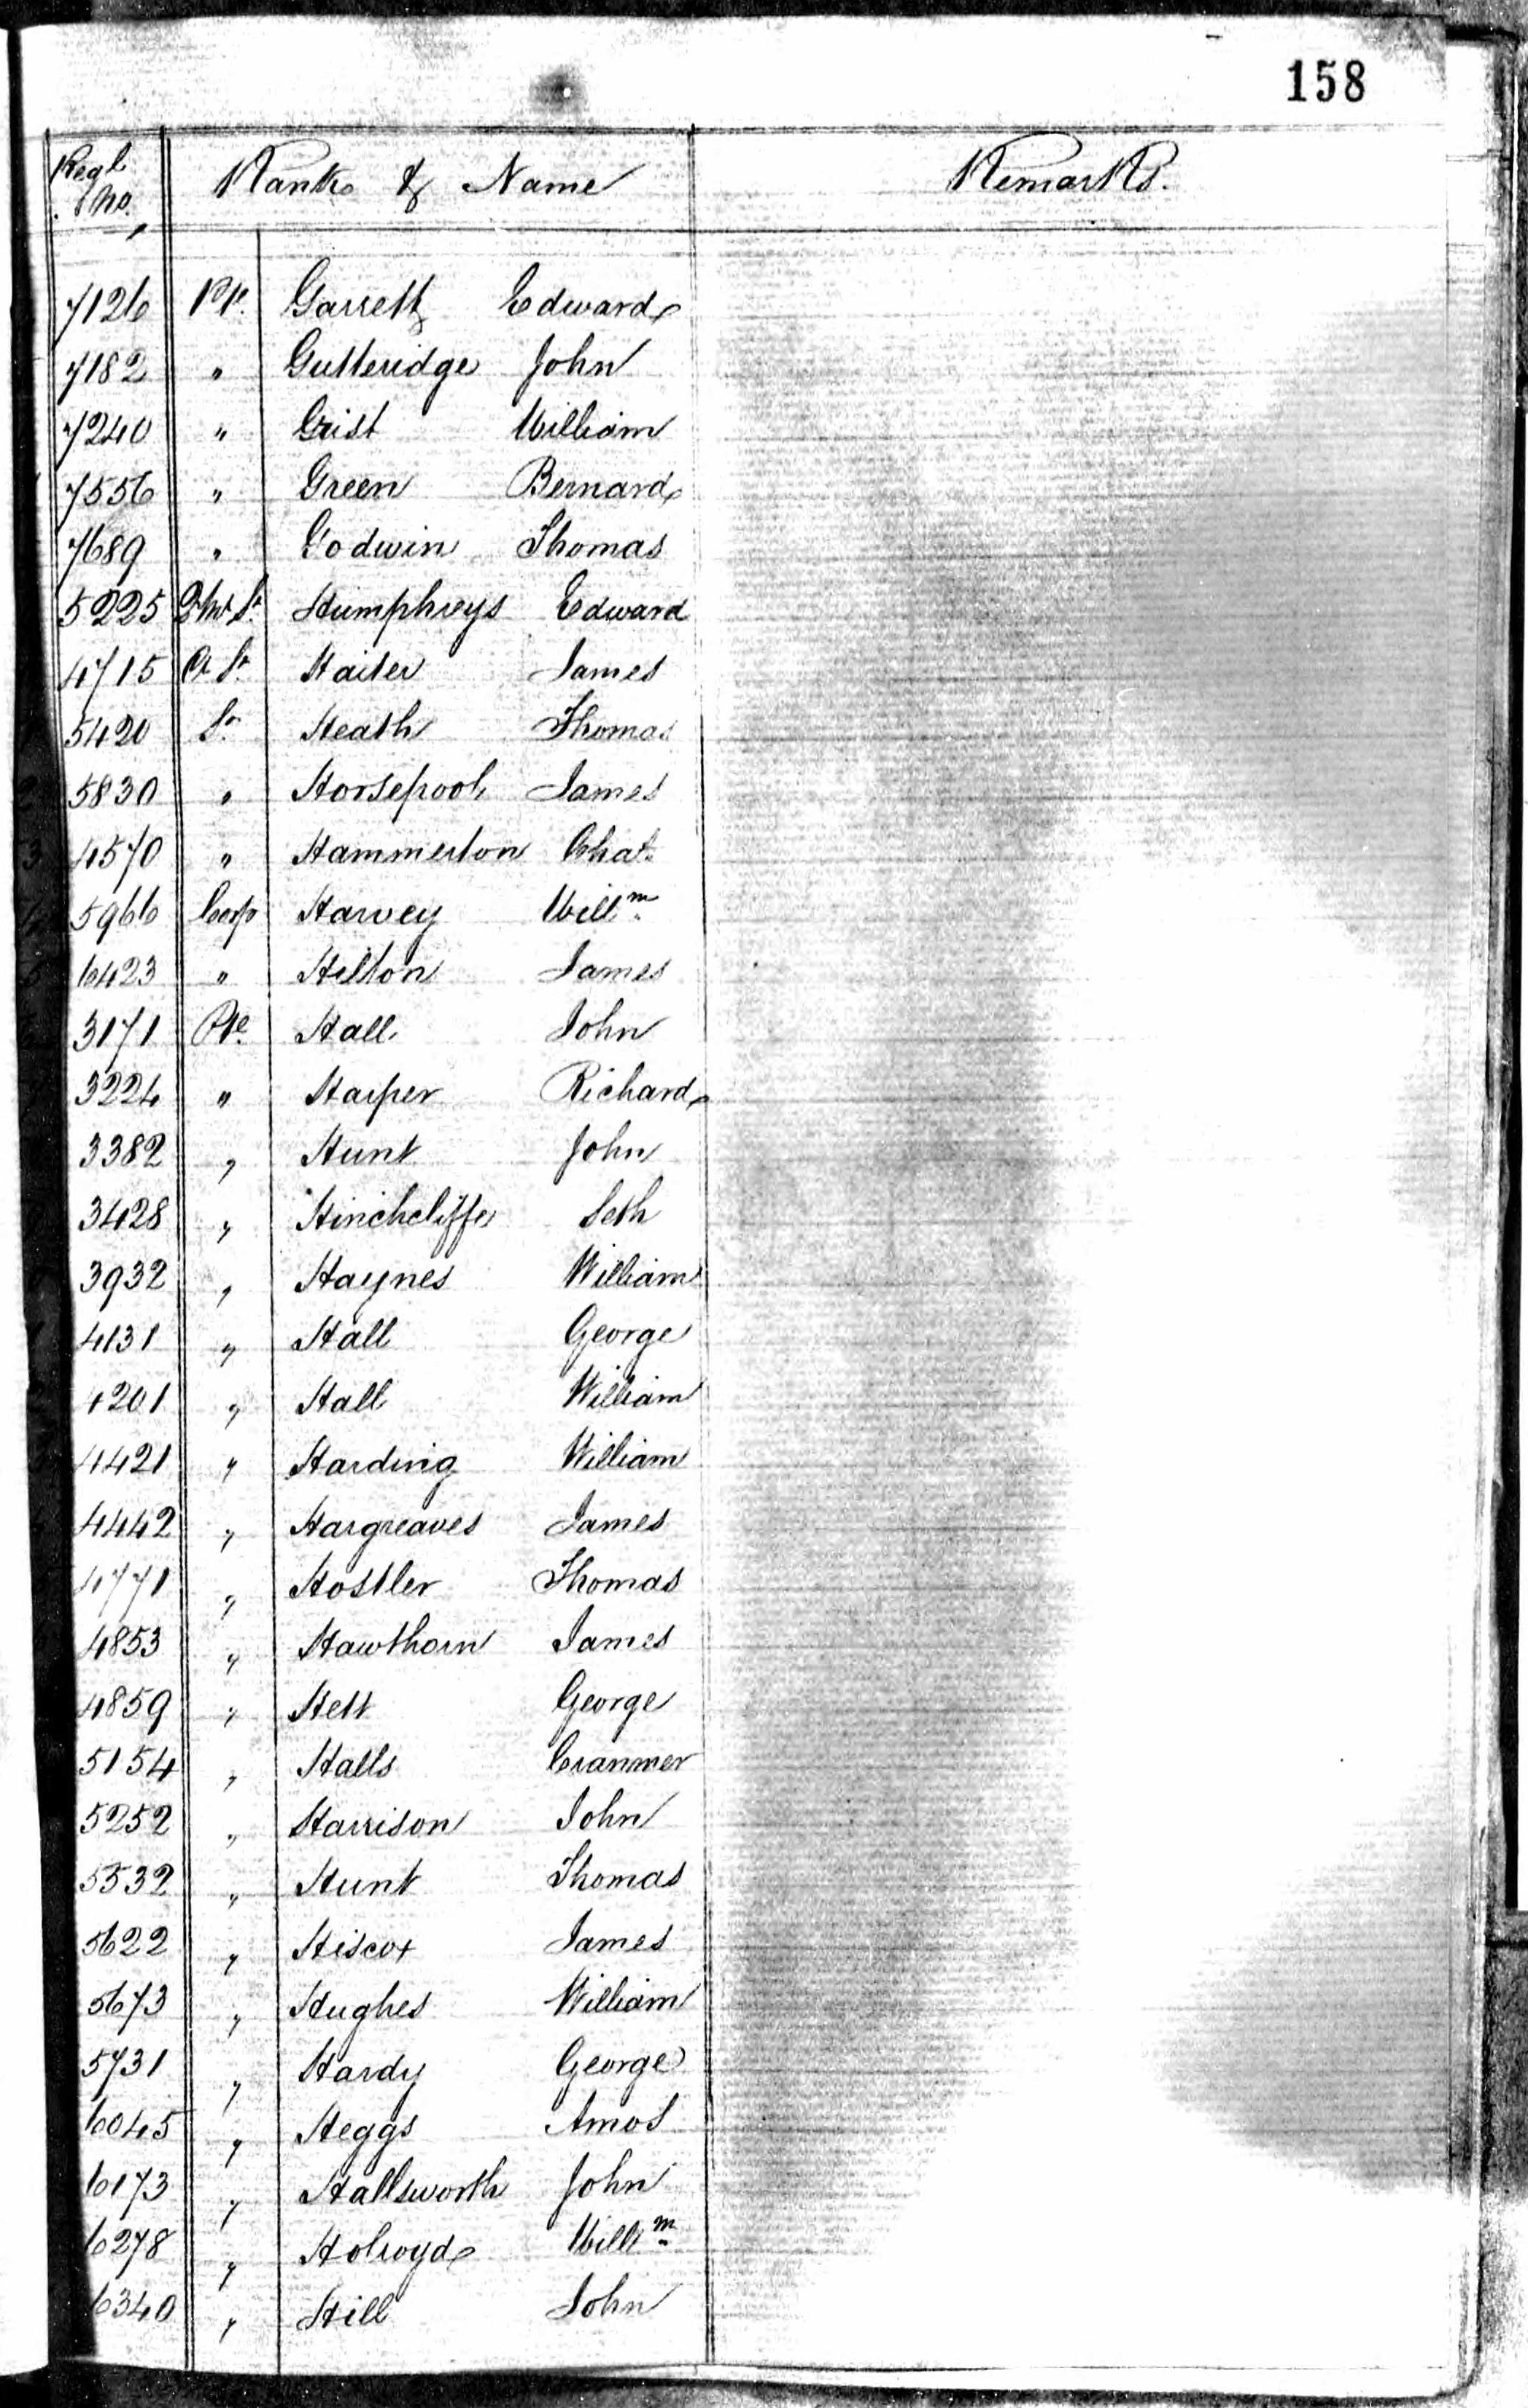 158
Regl No. Rank & Name Remarks.
7126 Pte. Garrett Edward
7182 " Gutteridge John
7240 " Grist William
7556 " Green Bernard
7689 " Godwin Thomas
5225 Humphreys Edward
4715 Haiter James
5420 Sr. Heath Thomas
5830 " Horsepool James
4570 " Hammerton Chas.
5966 Corp Harvey Willm.
6423 " Hilton James
3171 Pte. Hall John
3224 " Harper Richard
3382 " Hunt John
3428 " Hinchcliffe Seth
3932 " Haynes William
4131 " Hall George
4201 " Hall William
4421 " Harding William
4442 " Hargreaves James
4771 " Hostler Thomas
4853 " Hawthorn James
4859 " Hett George
5154 " Halls Cranmer
5252 " Harrison John
5532 " Hunt Thomas
5622 " Hiscox James
5673 " Hughes William
5731 " Hardy George
6045 " Heggs Amos
6173 " Hallsworth John
6278 " Holroyd Willm.
6340 " Hill John